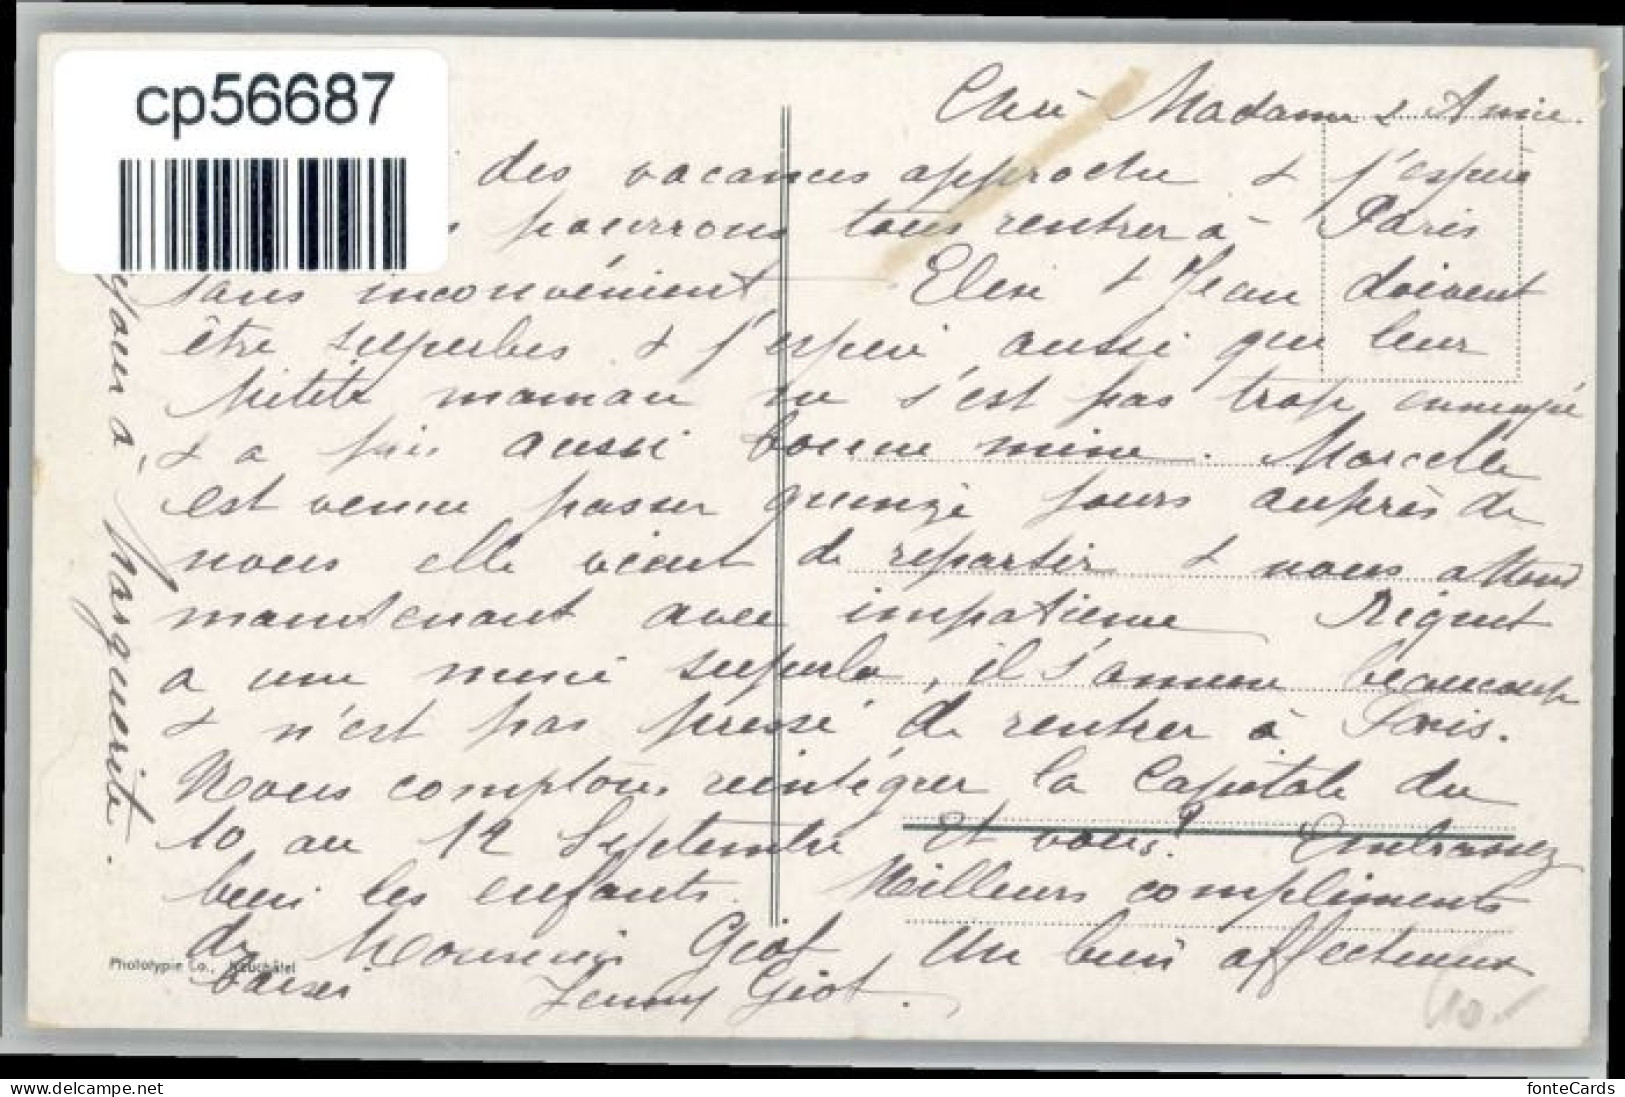 cp56687
Chère Madame & Amie.
des vacances approche & j'espère
pourrons tous rentrer à Paris
sans inconvénient Elise & Jean doivent
être superbes & j'espère aussi que leur
petite maman ne s'est pas trop ennuyée
& a pris aussi bonne mine. Marcelle
est venue passer quinze jours auprès de
nous elle vient de repartir & nous attend
maintenant avec impatience Riquet
a une mine superbe, il s'amuse beaucoup
& n'est pas pressé de rentrer à Paris.
Nous comptons réintégrer la Capitale du
10 au 12 Septembre Et vous? Embrassez
bien les enfants. Meilleurs compliments
de Monsieur Giot Un bien affectueux
baiser Jenny Giot.
à Marguerite.
Phototypie Co., Neuchâtel
10.-
www.delcampe.net
fonteCards